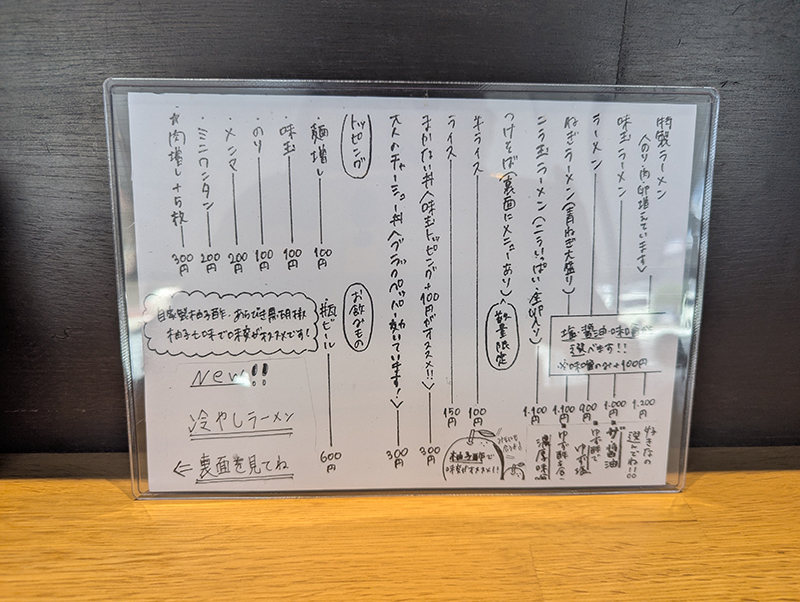 特製ラーメン 1,200円
(のり肉卵増えています)
味玉ラーメン 1,000円
ラーメン 900円
ねぎラーメン(青ねぎ大盛り) 1,100円
ニラ玉ラーメン(ニラいっぱい全卵入り) 1,100円
塩・醤油・味噌から
選べます!!
※味噌のみ+100円
好きなの
選んでね!!
ザ・醤油
ゆず酢で
ゆず塩
濃厚味噌
つけそば(裏面にメニューあり) 数量限定
半ライス 100円
ライス 150円
柚子酢で
味変がオススメ!!
まかない丼(味玉トッピング+100円がオススメ!!) 300円
大人のチャーシュー丼(ブラックペッパー効いています!) 300円
トッピング
麺増し 100円
味玉 100円
のり 100円
メンマ 200円
ミニワンタン 200円
肉増し+5枚 300円
お飲みもの
瓶ビール 600円
自家製柚子酢・あらびき黒胡椒
柚子七味で味変がオススメです!
New!!
冷やしラーメン
← 裏面を見てね